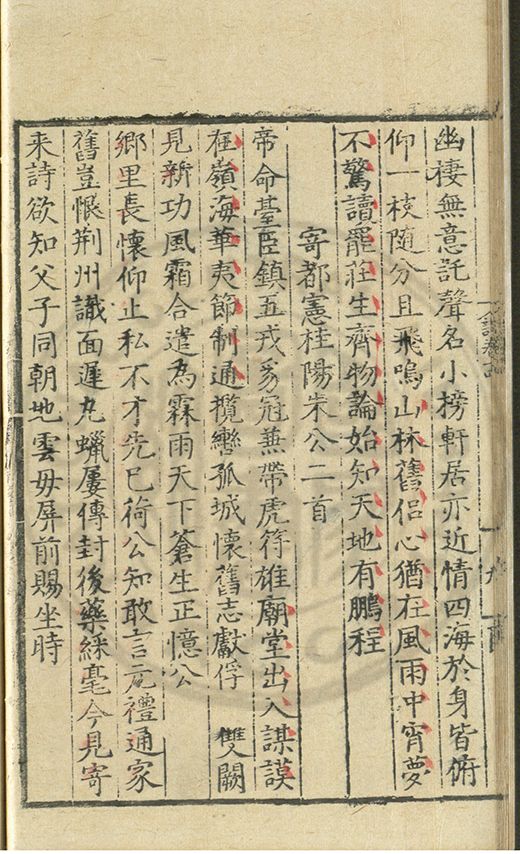 幽棲無意託聲名小榜軒居亦近情四海於身皆俯
仰一枝隨分且飛鳴山林舊侶心猶在風雨中宵夢
不驚讀罷莊生齊物論始知天地有鵬程
寄都憲桂陽朱公二首
帝命臺臣鎮五戎豸冠兼帶虎符雄廟堂出入謀謨
在嶺海華夷節制通攬轡孤城懷舊志獻俘雙闕
見新功風霜合遣為霖雨天下蒼生正憶公
鄉里長懷仰止私不才先已荷公知敢言元禮通家
舊豈恨荆州識面遲丸蠟屢傳封後藥綵毫今見寄
来詩欲知父子同朝地雲母屏前賜坐時